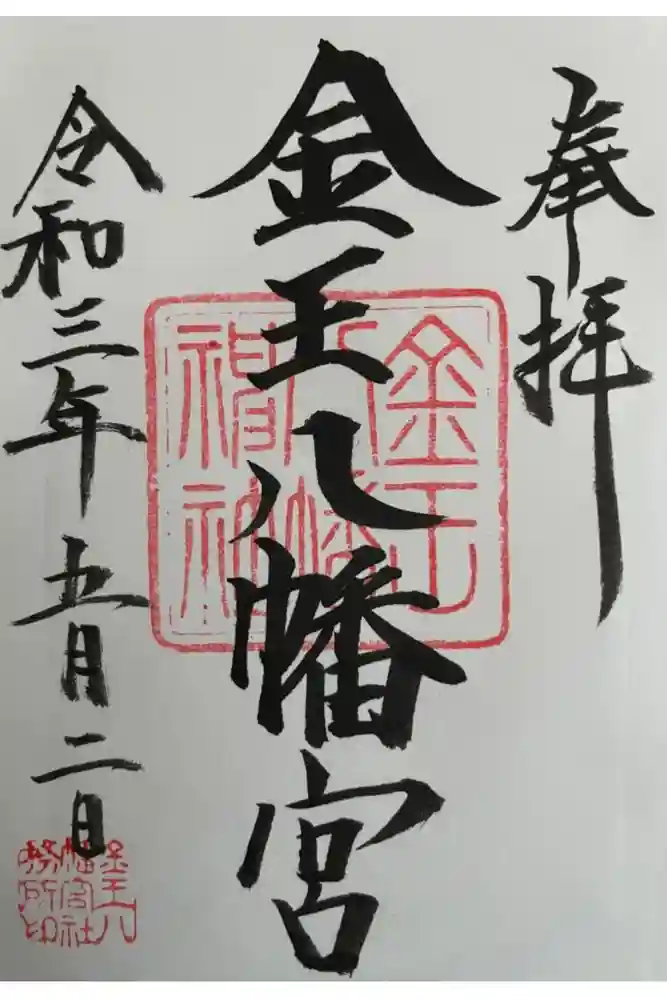 奉拝
金王八幡宮
令和三年五月二日
金王八幡神社
金王八幡宮社務所印